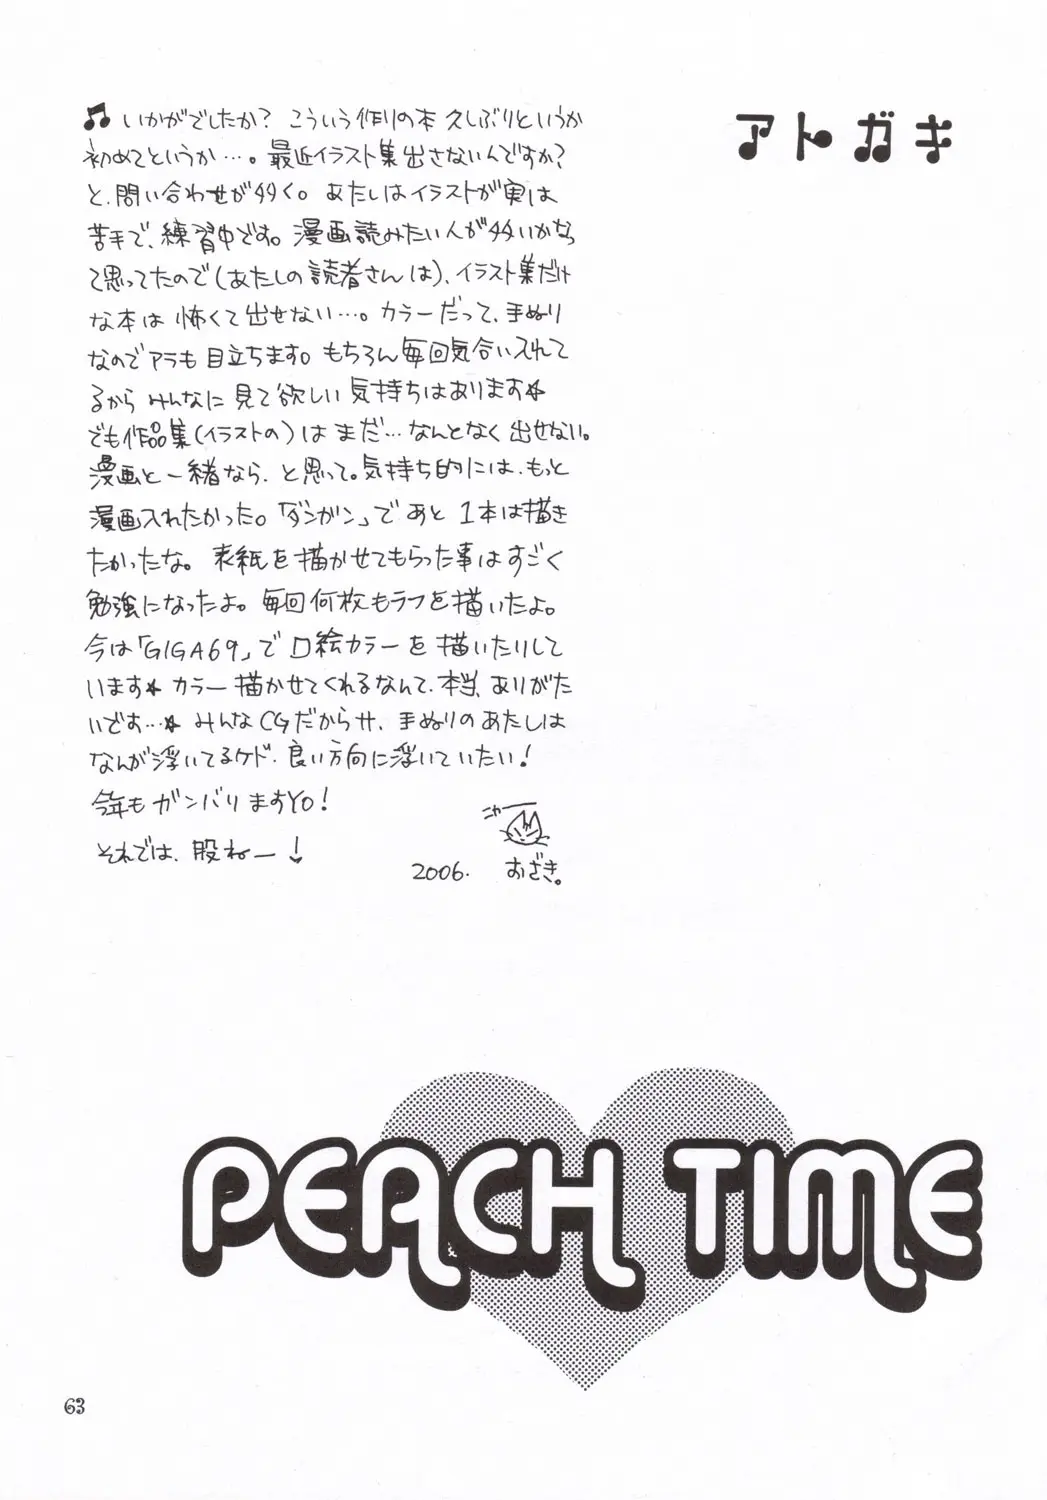 アトガキ
♫ いかがでしたか? こういう作りの本 久しぶりというか
初めてというか…。最近イラスト集出さないんですか?
と、問い合わせが多く。あたしはイラストが実は
苦手で、練習中です。漫画読みたい人が多いかな
て思ってたので(あたしの読者さんは)、イラスト集だけ
な本は 怖くて出せない…。カラーだって、手ぬり
なのでアラも目立ちます。もちろん毎回気合い入れて
るから みんなに見て欲しい気持ちはあります★
でも作品集(イラストの)は まだ…なんとなく出せない。
漫画と一緒なら、と思って。気持ち的には、もっと
漫画入れたかった。「ダンガン」であと 1本は描き
たかったな。表紙を描かせてもらった事はすごく
勉強になったよ。毎回何枚もラフを描いたよ。
今は「GIGA69」で口絵カラーを描いたりして
います★ カラー描かせてくれるなんて、本当、ありがた
いです…★ みんなCGだからサ、手ぬりのあたしは
なんか浮いてるケド、良い方向に浮いていたい!
今年もガンバりますYO!
それでは、股ねー!
ニャー
2006. おざき。
PEACH TIME
63